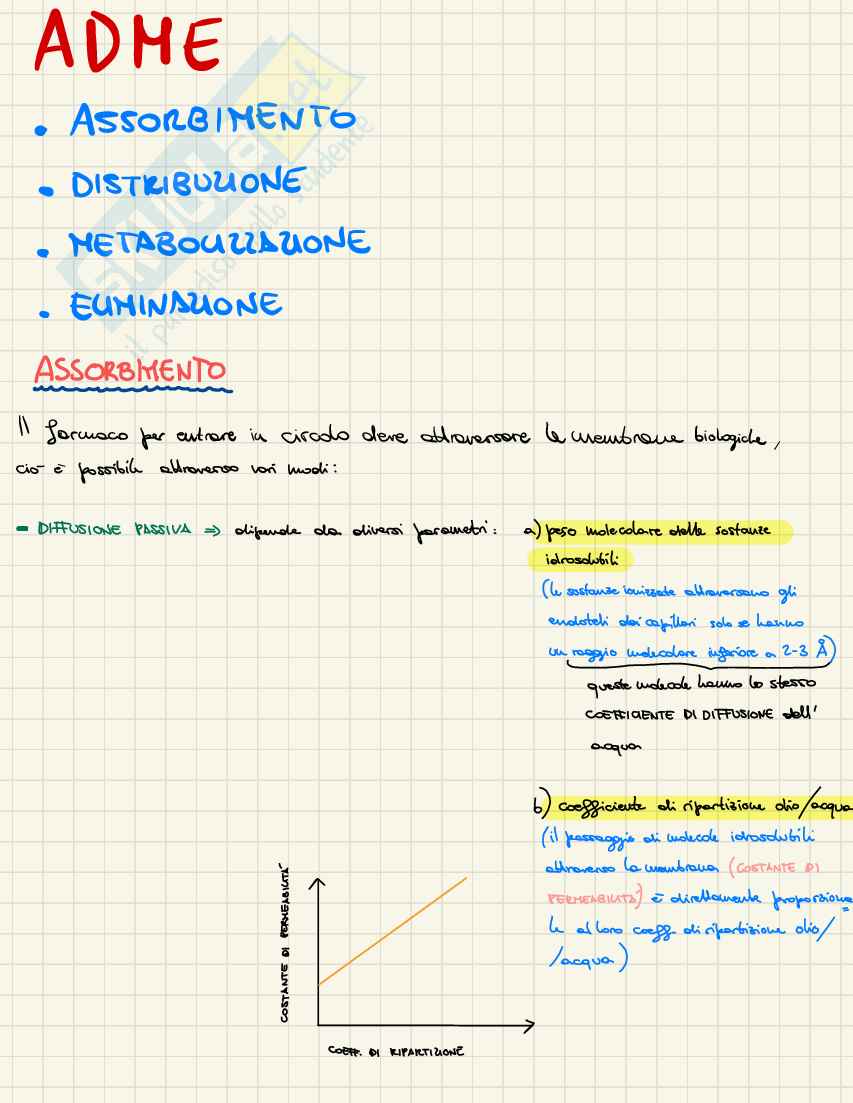 ADME
• ASSORBIMENTO
• DISTRIBUZIONE
• METABOLIZZAZIONE
• ELIMINAZIONE
SKUOLA.net
il paradiso dello studente
ASSORBIMENTO
Il farmaco per entrare in circolo deve attraversare le membrane biologiche,
ciò è possibile attraverso vari modi:
- DIFFUSIONE PASSIVA ⇒ dipende da diversi parametri: a) peso molecolare delle sostanze
idrosolubili
(le sostanze ionizzate attraversano gli
endoteli dei capillari solo se hanno
un raggio molecolare inferiore a 2-3 Å)
queste molecole hanno lo stesso
COEFFICIENTE DI DIFFUSIONE dell'
acqua
b) coefficiente di ripartizione olio/acqua
(il passaggio di molecole idrosolubili
attraverso la membrana (COSTANTE DI
PERMEABILITÀ) è direttamente proporziona
le al loro coeff. di ripartizione olio/
/acqua)
COSTANTE DI PERMEABILITÀ
COEFF. DI RIPARTIZIONE